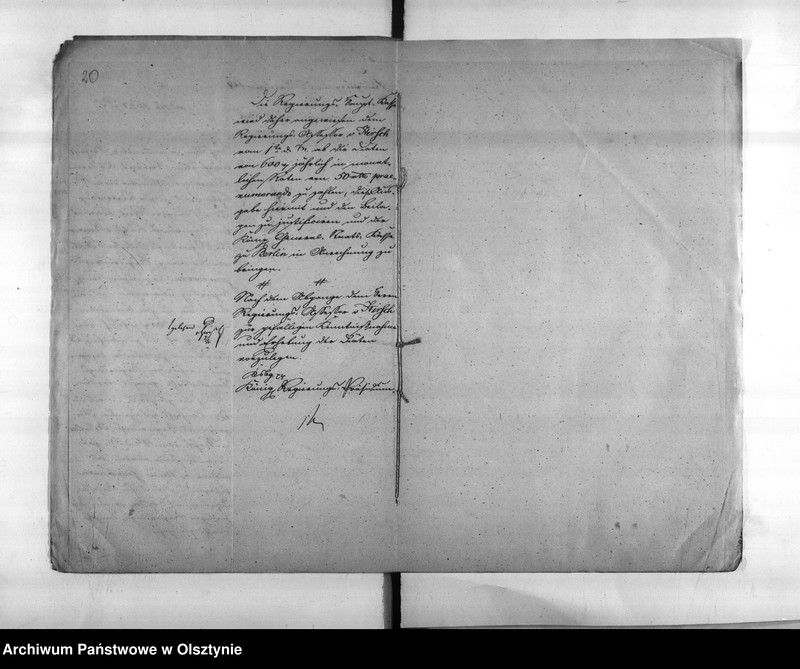 20
Die Regierungs-Haupt-Kasse
wird daher angewiesen dem
Regierungs-Assessor v
vom 1ten d. Mts. ab die Diäten
von 600 jährlich in monat-
lichen Raten von 50 rtl prae-
numerando zu zahlen, diese Aus-
gabe hiermit und den Beila-
gen zu justificiren und der
König General-Staats-Kasse
zu Berlin in Anrechnung zu
bringen.
Nach dem Abgange dem Herrn
Regierungs-Assessor v
zur gefälligen Kenntnißnahme
und Erhebung der Diäten
vorzulegen.
gelesen
Kbg.
König Regierungs-Präsidium.
Archiwum Państwowe w Olsztynie